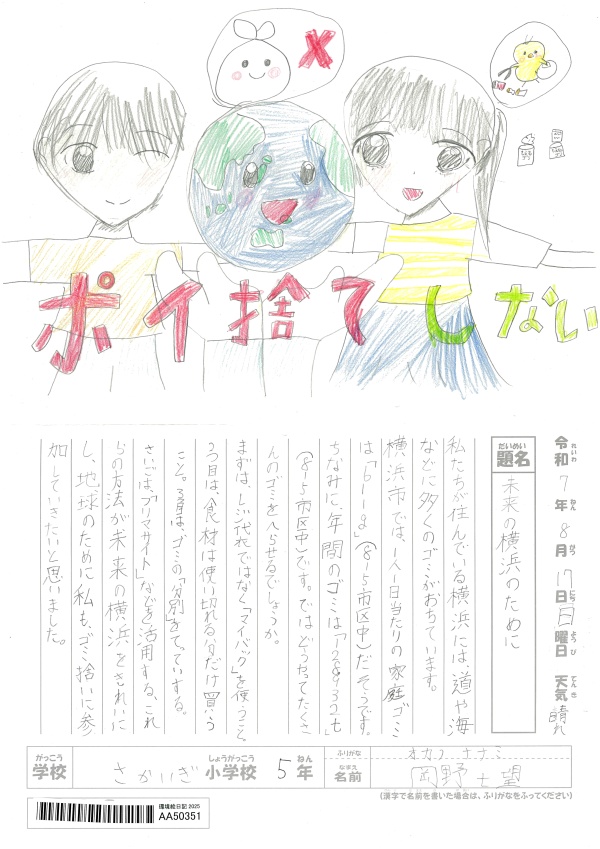 ポイ捨てしない
令和7年8月17日日曜日 天気晴れ
れいわ ねん がつ にち ようび てんき
だいめい
題名 未来の横浜のために
私たちが住んでいる横浜には、道や海
などに多くのゴミがおちています。
横浜市では、1人1日当たりの家庭ゴミ
は「611g」(8-5市区中)だそうです。
ちなみに、年間のゴミは「
(8-5市区中)です。ではどうやってたくさ
んのゴミをへらせるでしょうか。
まずは、レジ袋ではなく「マイバック」を使うこと、
2つ目は、食材は使い切れる分だけ買う
こと。3つ目は、ゴミの「分別」をてっていする。
さいごは、「フリマサイト」などを活用する、これ
らの方法が未来の横浜をきれいに
し、地球のために私も、ゴミ拾いに参
加していきたいと思いました。
がっこう しょうがっこう ねん ふりがな オカノ ナナミ
学校 さかいぎ 小学校 5年 なまえ 名前 岡野七望
(漢字で名前を書いた場合は、ふりがなをふってください)
環境絵日記 2025
AA50351